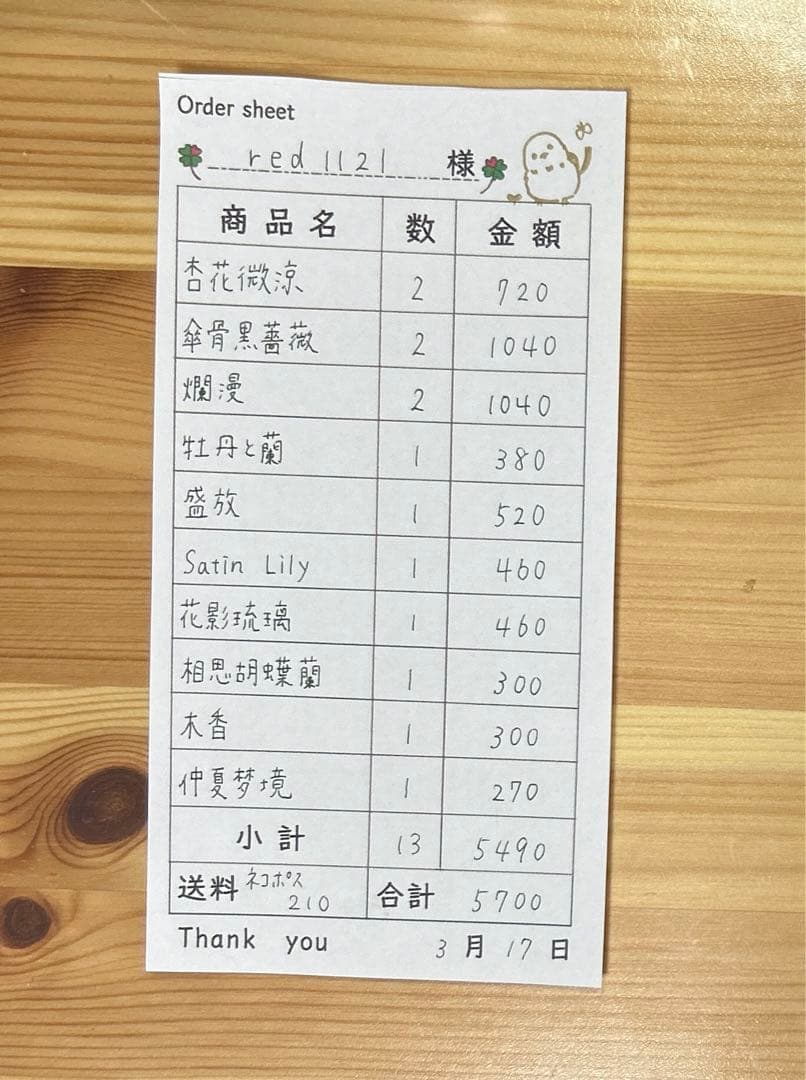 Order sheet
red 1121 様
商品名 数 金額
杏花微涼 2 720
傘骨黒薔薇 2 1040
爛漫 2 1040
牡丹と蘭 1 380
盛放 1 520
Satin Lily 1 460
花影琉璃 1 460
相思胡蝶蘭 1 300
木香 1 300
仲夏梦境 1 270
小計 13 5490
送料 ネコポス 210 合計 5700
Thank you 3月17日